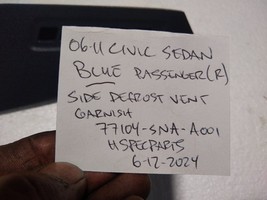 06-11 CIVIC SEDAN
BLUE PASSENGER (R)
SIDE DEFROST VENT
GARNISH
77104-SNA-A001
HSPECPARTS
6-12-2024